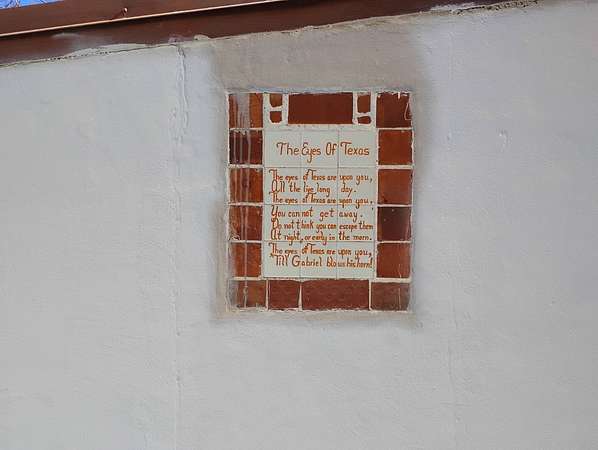 The Eyes Of Texas
The eyes of Texas are upon you,
All the live long day.
The eyes of Texas are upon you,
You can not get away.
Do not think you can escape them
At night, or early in the morn.
The eyes of Texas are upon you,
Till Gabriel blows his horn!